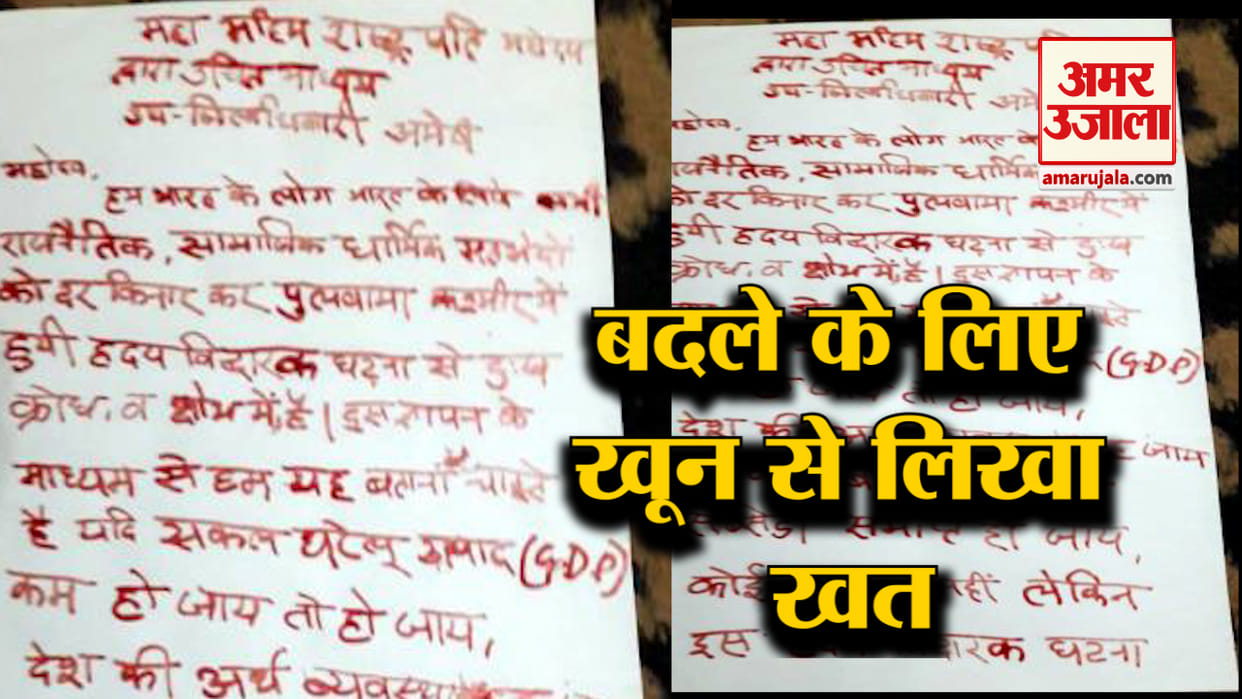 महा महिम राष्ट्र पति महोदय
द्वारा उचित माध्यम
उप-जिलाधिकारी अमेठी
महोदय,
हम भारत के लोग भारत के सभी
राजनैतिक, सामाजिक धार्मिक मतभेदो
को दर किनार कर पुलवामा कश्मीर में
हुयी हृदय विदारक घटना से दुःख
क्रोध, व क्षोभ में है। इस ज्ञापन के
माध्यम से हम यह बताना चाहते
है यदि सकल घरेलू उत्पाद (G.D.P)
कम हो जाय तो हो जाय,
देश की अर्थ व्यवस्था
महा महिम राष्ट्र पति
द्वारा उचित माध्यम
उप-जिलाधिकारी अमे
महोदय,
हम भारत के लोग भारत के
राजनैतिक, सामाजिक धार्मिक
को दर किनार कर पुलवामा कश्मीर में
हुयी हृदय विदारक घटना से दुःख
क्रोध, व क्षोभ में है। इस ज्ञापन के
(G.D.P)
तो हो जाय,
देश की
जाय
समाप्त हो जाय,
कोई नहीं लेकिन
इस दारक घटना
अमर
उजाला
amarujala.com
बदले के लिए
खून से लिखा
खत